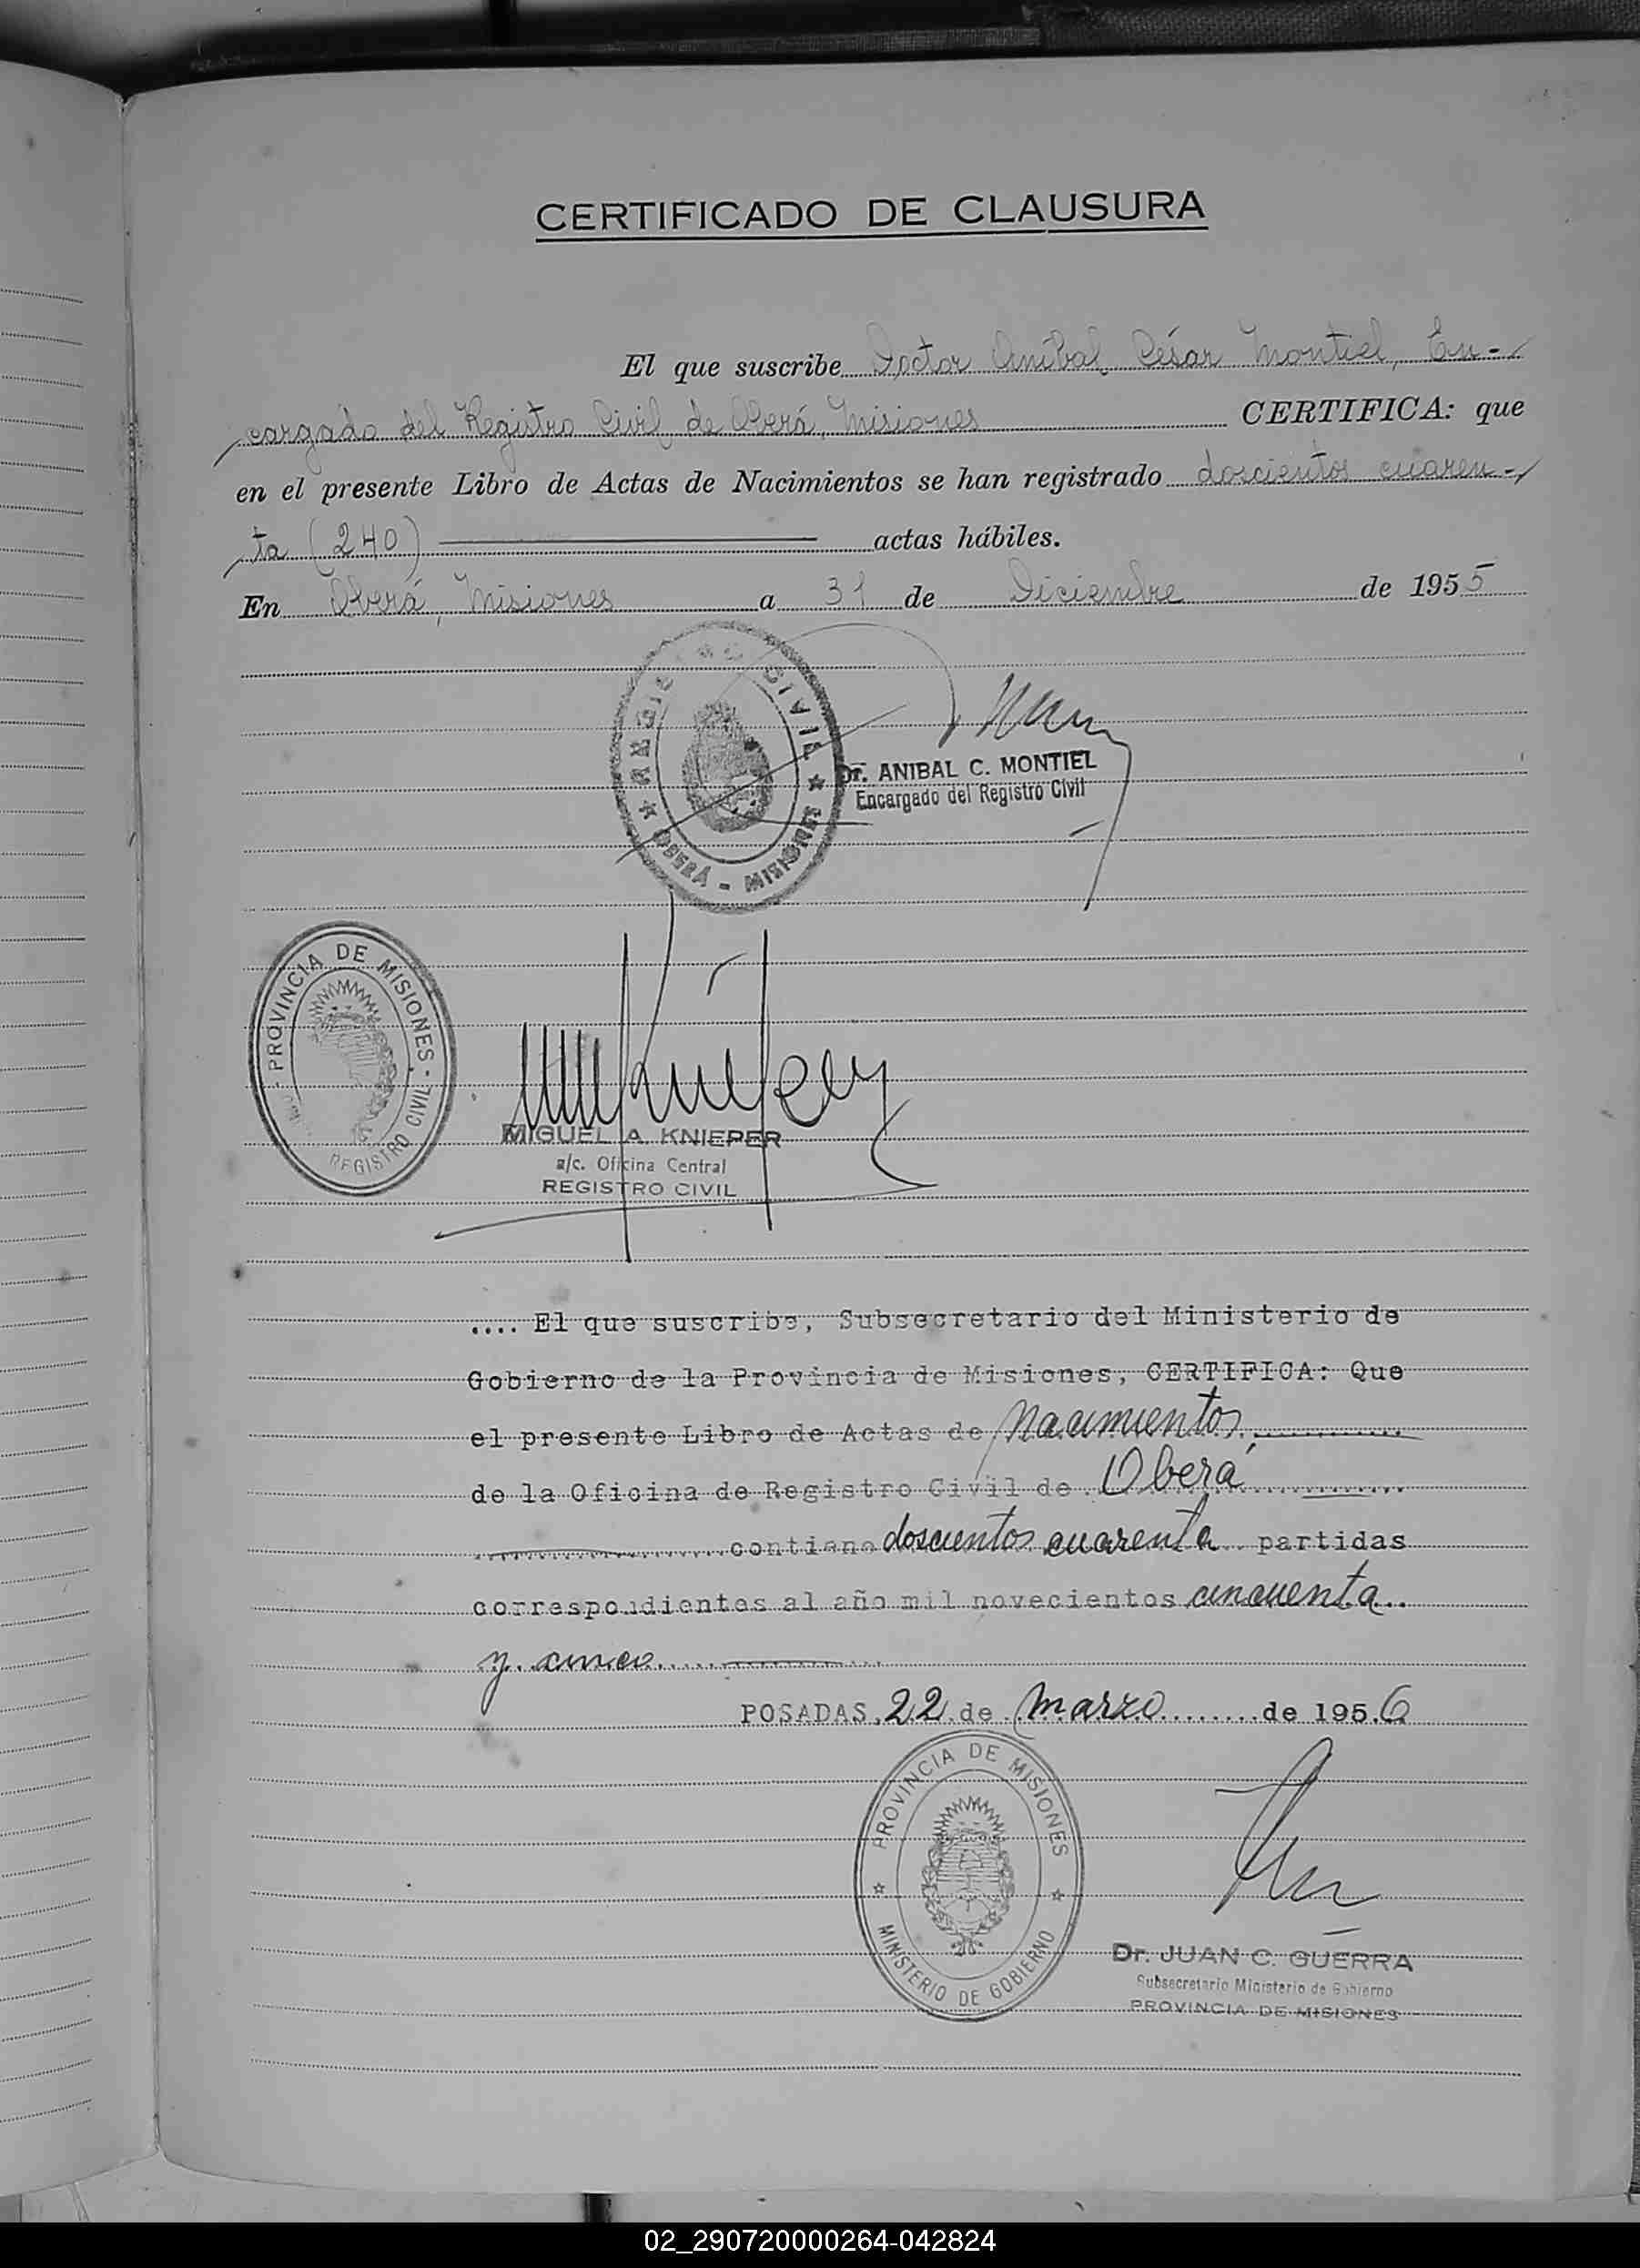 CERTIFICADO DE CLAUSURA
El que suscribe Doctor Anibal César Montiel, En-
cargado del Registro Civil de Oberá, Misiones CERTIFICA: que
en el presente Libro de Actas de Nacimientos se han registrado doscientos cuaren-
ta (240) actas hábiles.
En Oberá, Misiones a 31 de Diciembre de 1955
CIVIL
OBERÁ - MISIONES
Dr. ANIBAL C. MONTIEL
Encargado del Registro Civil
- PROVINCIA DE MISIONES -
REGISTRO CIVIL
MIGUEL A. KNIEPER
a/c. Oficina Central
REGISTRO CIVIL
.... El que suscribe, Subsecretario del Ministerio de
Gobierno de la Provincia de Misiones, CERTIFICA: Que
el presente Libro de Actas de Nacimientos
de la Oficina de Registro Civil de Oberá
contiene doscientos cuarenta partidas
correspondientes al año mil novecientos cincuenta
y cinco
POSADAS, 22 de Marzo de 1956
PROVINCIA DE MISIONES
MINISTERIO DE GOBIERNO
Dr. JUAN C. GUERRA
Subsecretario Ministerio de Gobierno
PROVINCIA DE MISIONES
02_290720000264-042824